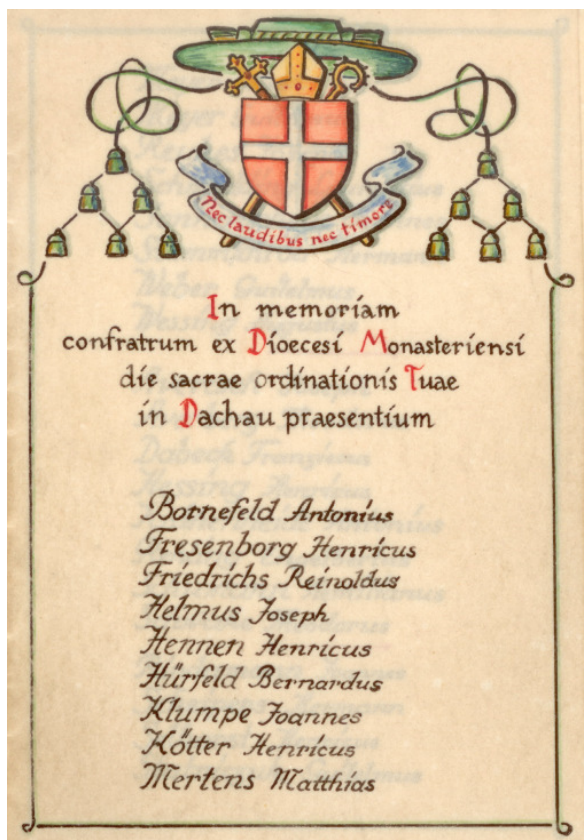 Nec laudibus nec timore
In memoriam
confratrum ex Dioecesi Monasteriensi
die sacrae ordinationis Tuae
in Dachau praesentium
Bornefeld Antonius
Fresenborg Henricus
Friedrichs Reinoldus
Helmus Joseph
Hennen Henricus
Hürfeld Bernardus
Klumpe Joannes
Kötter Henricus
Mertens Matthias